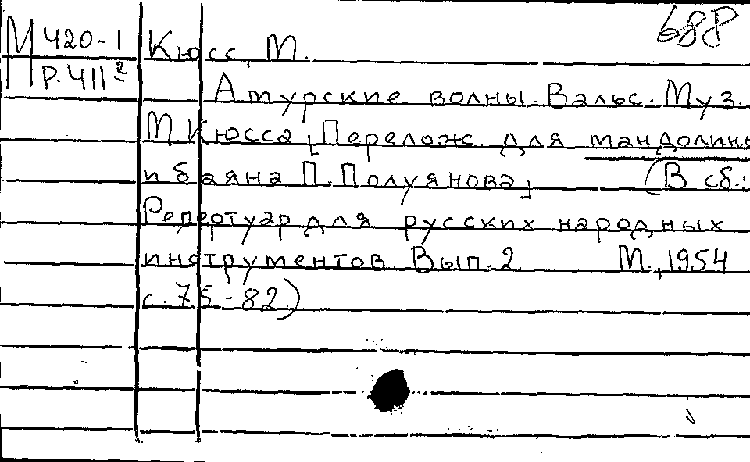 688
М 420-1
Р.411²
Кюсс, М.
Амурские волны. Вальс. Муз.
М. Кюсса [Перелож. для мандолины
и баяна П. Полуянова] (В сб.:
Репертуар для русских народных
инструментов. Вып. 2 М., 1954
с. 75-82)